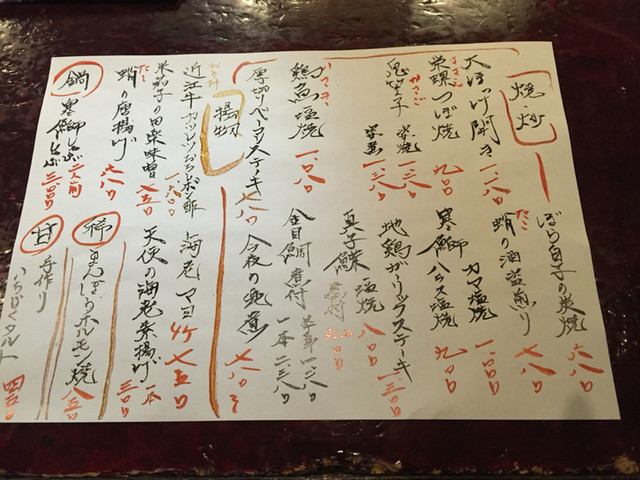 焼・炒
大ほっけ開き 一、二八〇
さざえ
栄螺つぼ焼 九〇〇
かさご
鬼笠子 柴焼 一、三八〇
塩焼 一、〇八〇
厚切りベーコンステーキ 七八〇
ぼら白子の炭焼 六八〇
たこ
蛸の酒盗煎り 七八〇
寒鰤 カマ塩焼 一、〇〇〇
ハラス塩焼 九〇〇
地鶏ガーリックステーキ
真子鰈 塩焼 八〇〇
金目鯛煮付 半身 一、二八〇
一本 二、三八〇
今夜の逸煮 七八〇
揚物
近江牛カツレツおろしポン酢 一、六八〇
米茄子の田楽味噌 七五〇
たこ
蛸の唐揚げ 六八〇
海老マヨ 七五〇
天使の海老 揚げ 一本 三〇〇
鍋
寒鰤しゃぶ 二人前 三、〇〇〇
稀
まんぼうホルモン焼 八五〇
甘
手作り
いちじくタルト 四五〇